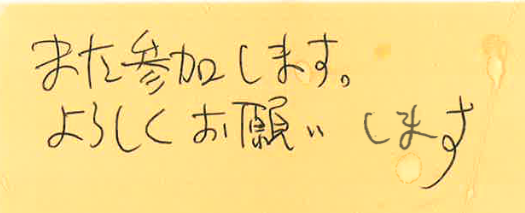 また参加します。
よろしくお願いします